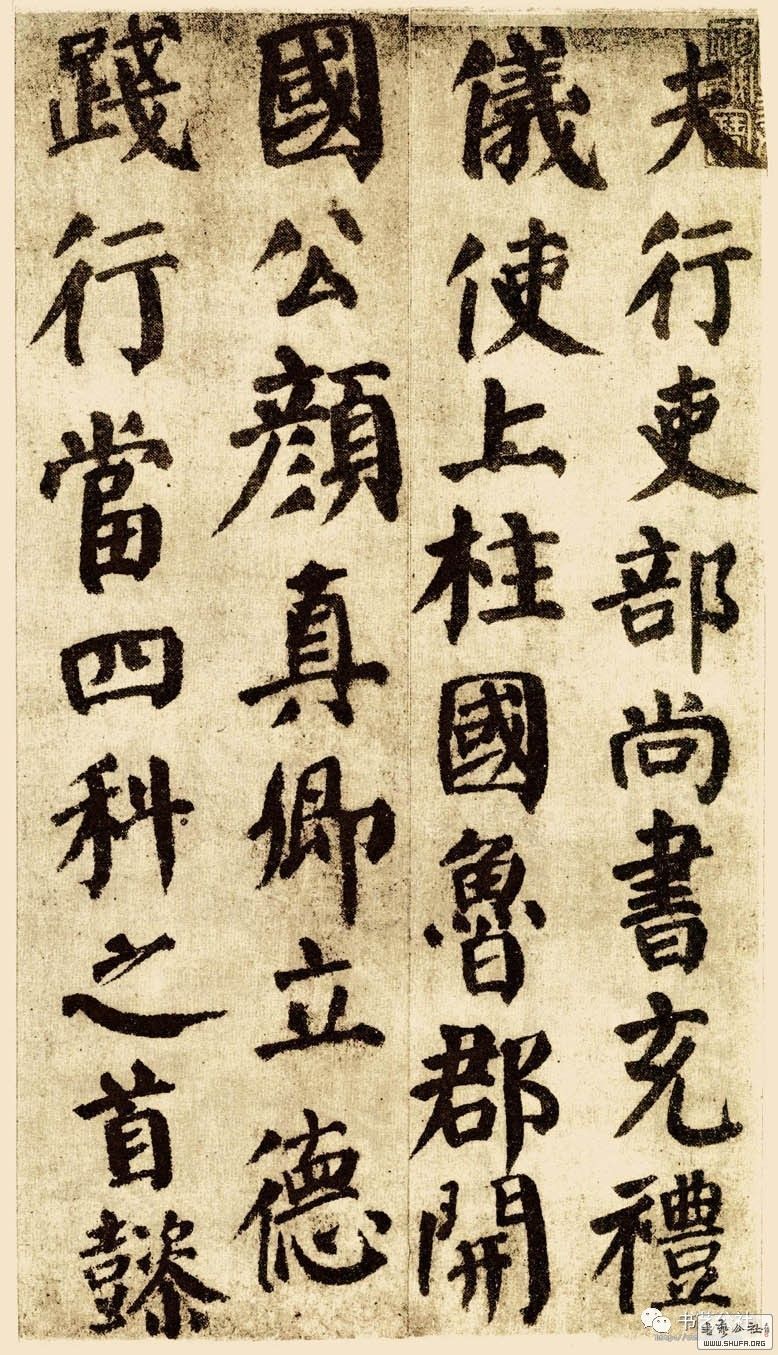 夫行吏部尚書充禮
儀使上柱國魯郡開
國公顔真卿立德
踐行當四科之首懿
书艺公社
书艺公社
WWW.SHUFA.ORG